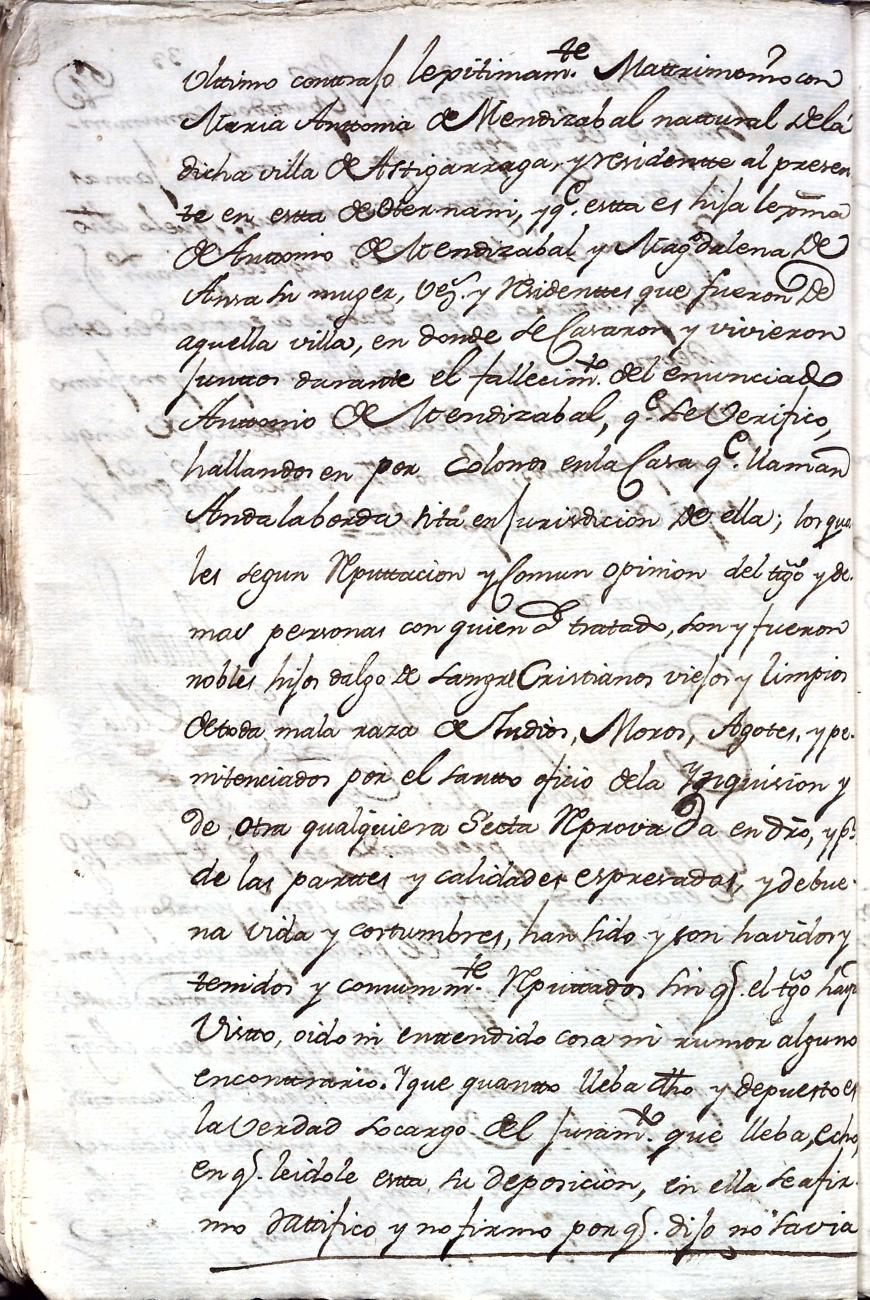 Ulttimo conttrajo lexitimam.te Mattrimonio con
Maria Anttonia de Mendizabal nattural dela
dicha villa de Astigarraga, y residentte al presen
te en estta de Hernani, y q.e estta es hija lexma
de Anttonio de Mendizabal y Magdalena De
Ansa su muger, vez.s y Residenttes que fueron De
aquella villa, en donde se Casaron y vivieron
junttos durante el fallecim.to del enunciado
Anttonio de Mendizabal, q.e se Verifico,
hallandos en por Colonos enla Casa q.e llaman
Andalaborda sita en Jurisdicion de ella; los qua
les segun Reputtacion y Comun opinion del tgo y de-
mas personas con quien à tratado, son y fueron
nobles hijos dalgo de sangre Cristianos viejos y limpios
de toda mala raza de Judios, Moros, Agotes, y pe-
nitenciados por el santto oficio dela Ynquision y
de otra qualquiera Secta Reprovada en dro, y p.r
de las parttes y calidades espresadas, y de bue-
na vida y costumbres, han sido y son havidos y
tenidos y comunm.te Reputtados sin q.e el tgo haya
Vistto, oido ni enttendido cosa ni rumor alguno
enconttrario. Y que quantto lleba dho y depuesto es
la Verdad so cargo del juram.to que lleba echo,
en q.e leidole estta su deposicion, en ella se afir-
mo rattifico y no firmo por q.e dijo no savia